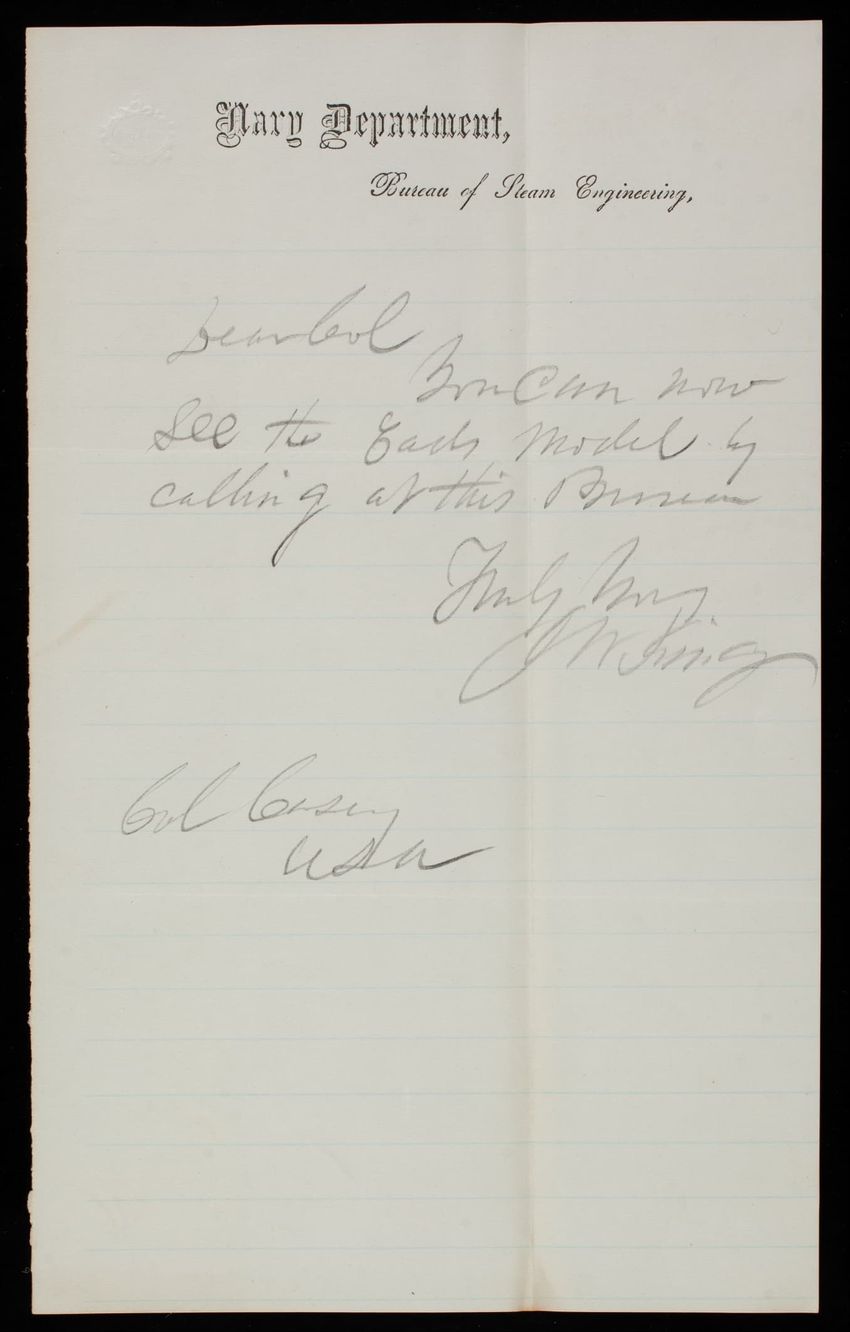 Navy Department,
Bureau of Steam Engineering,
Dear Col
You can now
see the Eads Model by
calling at this Bureau
Truly Yours
J W King
Col Casey
USA